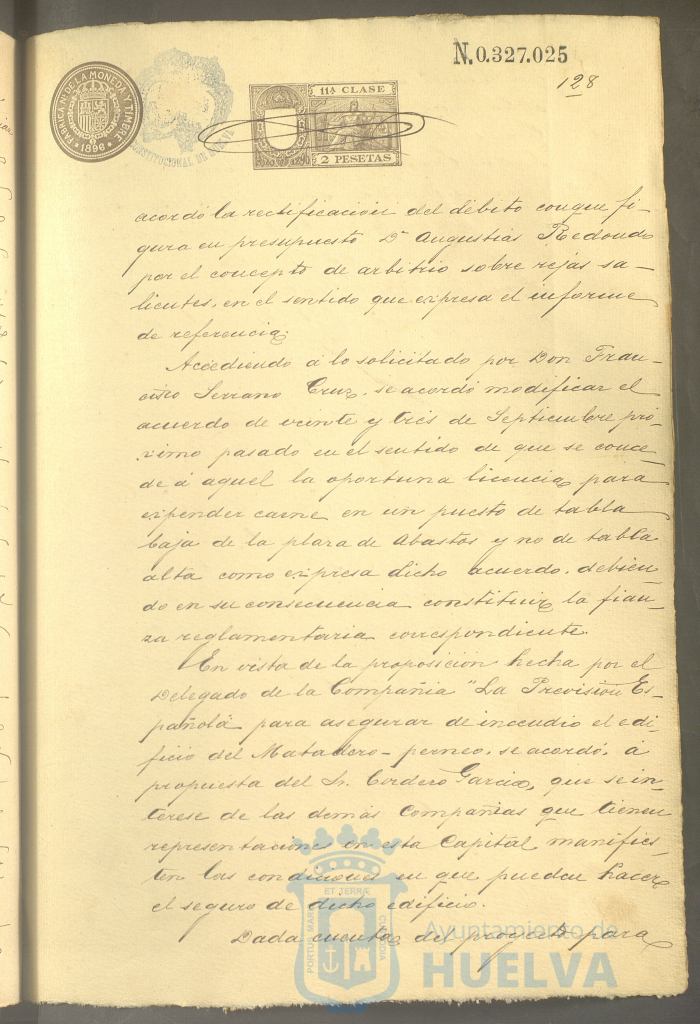 N. 0.327.025
128
FABRICA N.L DE LA MONEDA Y TIMBRE
* 1896 *
CONSTITUCIONAL DE HUELVA
11ª CLASE
2 PESETAS
acordó la rectificación del débito conque fi-
gura en presupuesto Dª Augustias Redondo
por el concepto de arbitrio sobre rejas sa-
lientes, en el sentido que expresa el informe
de referencia.
Accediendo á lo solicitado por Don Fran-
cisco Serrano Cruz, se acordó modificar el
acuerdo de veinte y tres de Septiembre pró-
ximo pasado en el sentido de que se conce-
de á aquel la oportuna licencia para
expender carne en un puesto de tabla
baja de la plaza de Abastos y no de tabla
alta como expresa dicho acuerdo, debien-
do en su consecuencia constituir la fian-
za reglamentaria correspondiente.
En vista de la proposición hecha por el
Delegado de la Compañia "La Previsión Es-
pañola" para asegurar de incendio el edi-
ficio del Matadero-perneo, se acordó, á
propuesta del Sr. Cordero Garcia, que se in-
terese de las demás Compañias que tienen
representaciones en esta Capital manifies-
ten las condiciones en que pueden hacer
el seguro de dicho edificio.
Dada cuenta del proyecto para
PORTUS MARIS ET TERRÆ CUSTODIA
Ayuntamiento de
HUELVA